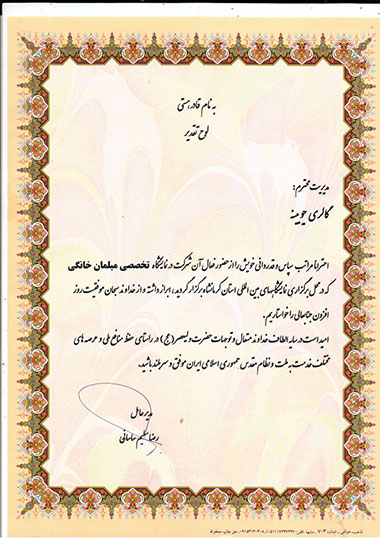 به نام قادر هستی
لوح تقدیر
مدیریت محترم:
گالری چوبینه
احتراما مراتب سپاس و قدردانی خویش را از حضور فعال آن شرکت در نمایشگاه تخصصی مبلمان خانگی
که در محل برگزاری نمایشگاههای بین المللی استان کرمانشاه برگزار گردید، ابراز داشته و از خداوند سبحان موفقیت روز
افزون جنابعالی را خواستاریم.
امید است در سایه الطاف خداوند متعال و توجهات حضرت ولیعصر (عج) در راستای حفظ منافع ملی و عرصه های
مختلف خدمت به ملت و نظام مقدس جمهوری اسلامی ایران موفق و سربلند باشید.
مدیر عامل
رضا سلیم ساسانی
حق چاپ محفوظ